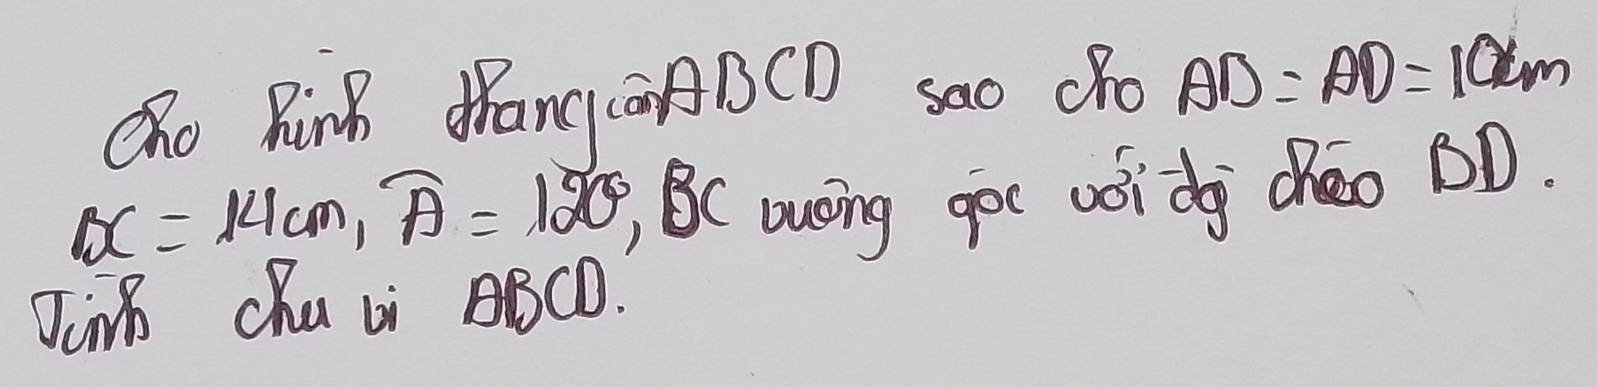 Cho hình thang cân ABCD sao cho AB = AD = 10cm
BC = 14cm, Â = 120°, BC vuông góc với đg chéo BD.
Tính chu vi ABCD.